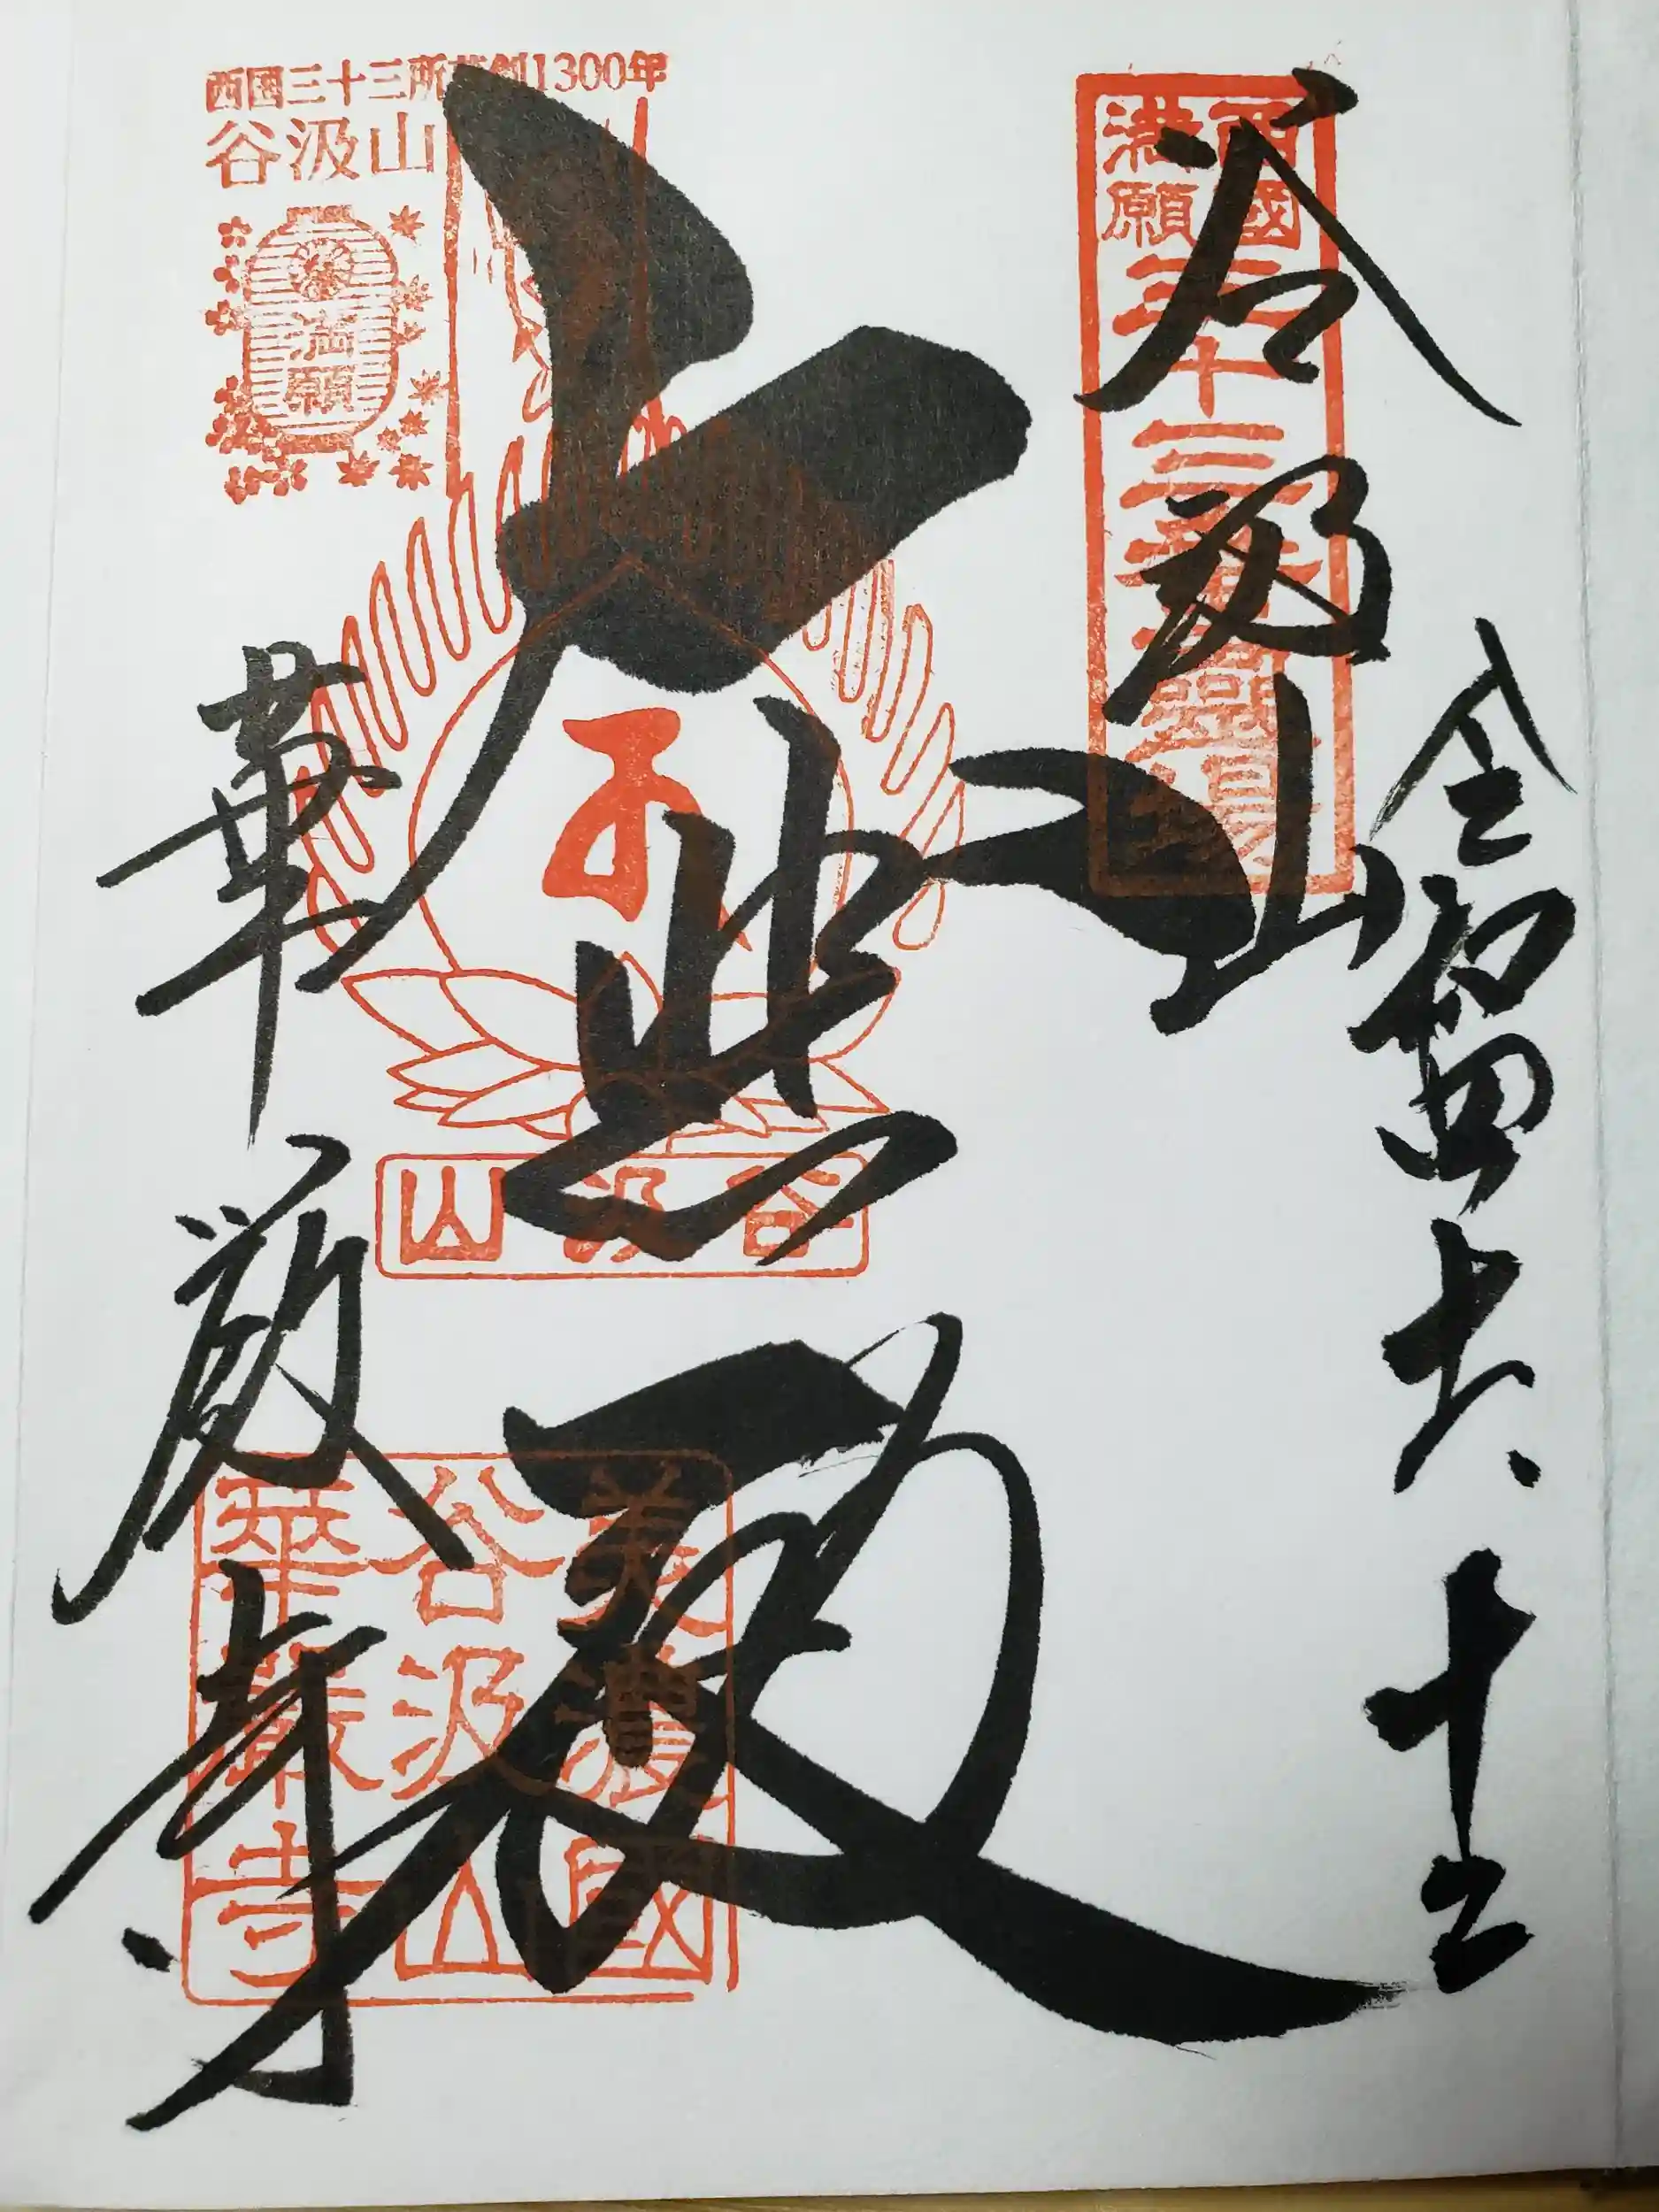 西國三十三所草創1300年
谷汲山
満願
西國
満願
三十三番
谷汲山
令和
大悲殿
谷汲山
華厳寺
美濃國
谷汲山
華嚴寺